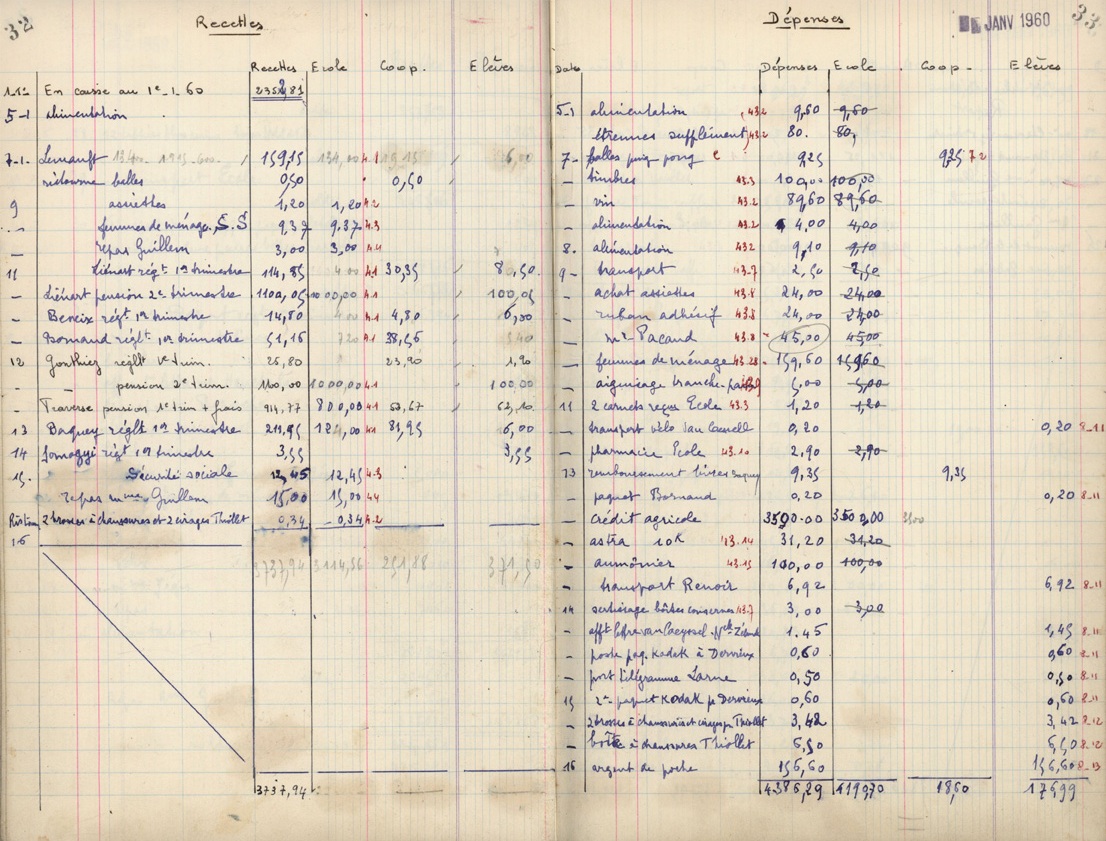 32
Recettes
Recettes Ecole Coop. Elèves
1-1- En caisse au 1e-1-60 2352,81
5-1 alimentation
7-1- 159,15 134,00 4.1 19,15 6,00
ristourne balles 0,50 0,50
9 assiettes 1,20 1,20 4.2
femmes de ménage, S.S 9,37 9,37 4.3
- repas Guillem 3,00 3,00 4.4
11 Liénart régt 1er trimestre 114,85 4,00 4.1 30,35 80,50
- Liénart pension 2e trimestre 1100,05 1000,00 4.1 100,05
- régt 1er trimestre 14,80 4,00 4.1 4,80 6,00
- Bornand réglt 1er trimestre 51,16 7,20 4.1 38,56 5,40
12 Gonthiez réglt 1e trim. 25,80 23,90 1,90
- - pension 2e trim. 1100,00 1000,00 4.1 100,00
- Traverse pension 1e trim + frais 914,77 800,00 4.1 52,67 62,10
13 Baquey réglt 1er trimestre 211,95 124,00 4.1 81,95 6,00
14 Somogyi régt 1er trimestre 3,55 3,55
15. Sécurité sociale 12,45 12,45 4.3
repas Guillem 15,00 15,00 4.4
2 brosses à chaussures et 2 cirages Thiollet 0,34 - 0,34 4.2
16
3737,94 3114,56 251,88 371,50
3737,94
33
JANV 1960
Dépenses
Date Dépenses Ecole Coop. Elèves
5-1 alimentation 43.2 9,60 9,60
étrennes supplément 43.2 80. 80,
7- balles ping pong 9,25 9,25 7.2
- timbres 43.3 100,00 100,00
- vin 43.2 89,60 89,60
- alimentation 43.2 4,00 4,00
8. alimentation 43.2 9,10 9,10
9- transport 43.7 2,50 2,50
- achat assiettes 43.8 24,00 24,00
- ruban adhésif 43.8 24,00 24,00
- Pacaud 43.8 45,00 45,00
- femmes de ménage 43.28 159,60 159,60
- aiguisage tranche-pain 5,00 5,00
11 2 carnets reçus Ecole 43.3 1,20 1,20
- transport vélo 0,20 0,20 8-11
- pharmacie Ecole 43.10 2,90 2,90
13 remboursement livres Baquey 9,35 9,35
- paquet Bornand 0,20 0,20 8-11
- crédit agricole 3500.00 3500,00
- astra 10K 43.14 31,20 31,20
- aumônier 43.15 100,00 100,00
- transport Renoir 6,92 6,92 8-11
14 sertissage boîtes conserves 43.7 3,00 3,00
- Nlle Zélande 1.45 1,45 8.11
- poste paq. Kodak à Dervieux 0,60 0,60 8.11
- port télégramme Larue 0,50 0,50 8-11
15 2e paquet Kodak pr Dervieux 0,60 0,60 8-11
- 2 brosses à chaussures et cirages pr Thiollet 3,42 3,42 8-12
- boîte à chaussures Thiollet 5,50 5,50 8-12
16 argent de poche 156,60 156,60 8-13
4386,29 4190,70 18,60 176,99